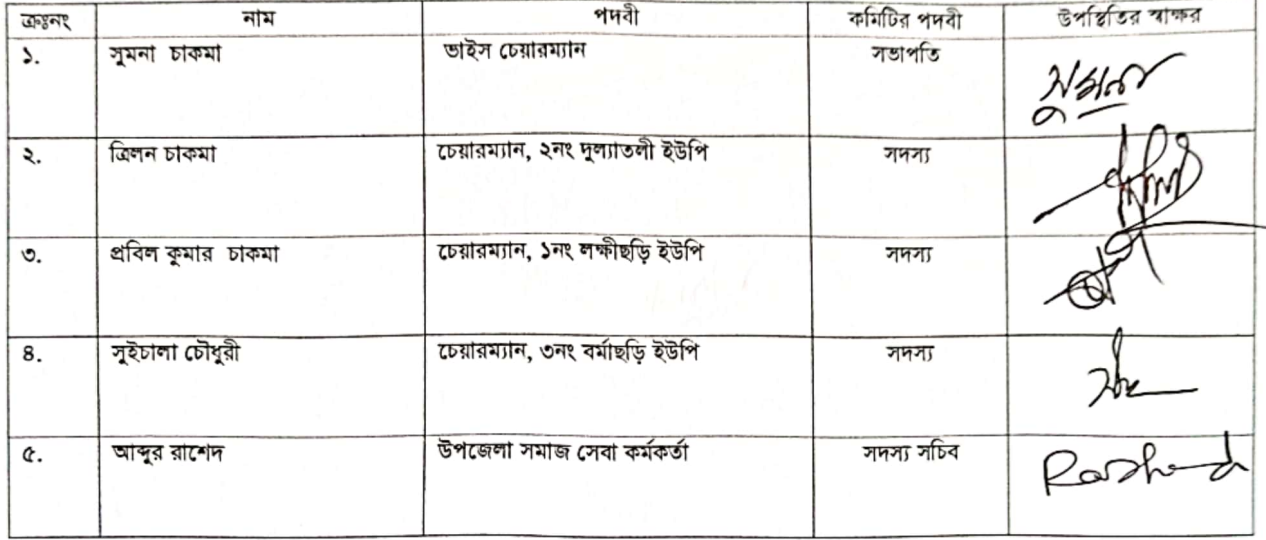 ক্রঃনং নাম পদবী কমিটির পদবী উপস্থিতির স্বাক্ষর
১. সুমনা চাকমা ভাইস চেয়ারম্যান সভাপতি সুমনা
২. ত্রিলন চাকমা চেয়ারম্যান, ২নং দুল্যাতলী ইউপি সদস্য
৩. প্রবিল কুমার চাকমা চেয়ারম্যান, ১নং লক্ষীছড়ি ইউপি সদস্য
৪. সুইচালা চৌধুরী চেয়ারম্যান, ৩নং বর্মাছড়ি ইউপি সদস্য
৫. আব্দুর রাশেদ উপজেলা সমাজ সেবা কর্মকর্তা সদস্য সচিব Rashed